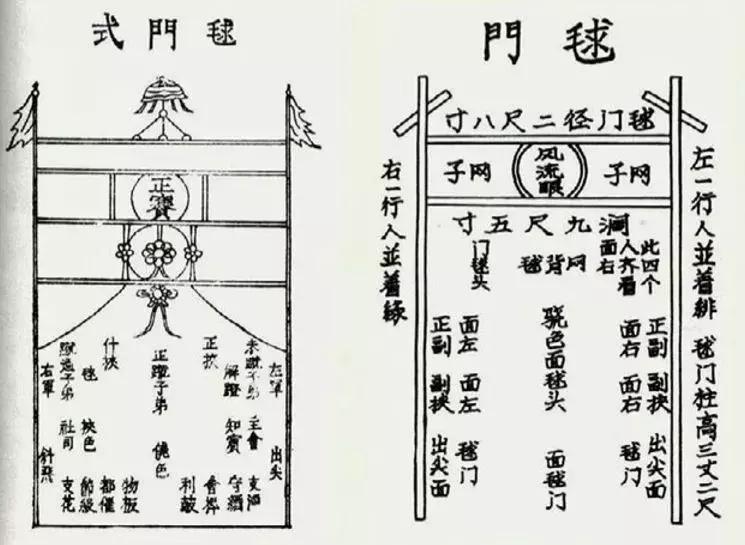 毬門式
正寶
左軍
出尖
主會
支酒
解蹬
知賓
守酒
正挾
正蹴子弟
物板
都催
毬
挾色
節級
社司
支花
右軍
毬門
毬门径二尺八寸
网子
风流眼
网子
九尺五寸
左一行人並着緋 毬门柱高三丈二尺
右一行人並着緑
此四个
人齐看
面右
网背毬
门毬头
正副 副挟 出尖面
面右 面右 毬门
骁色面毬头 面毬门
面左 面左 毬门
正副 副挟 出尖面